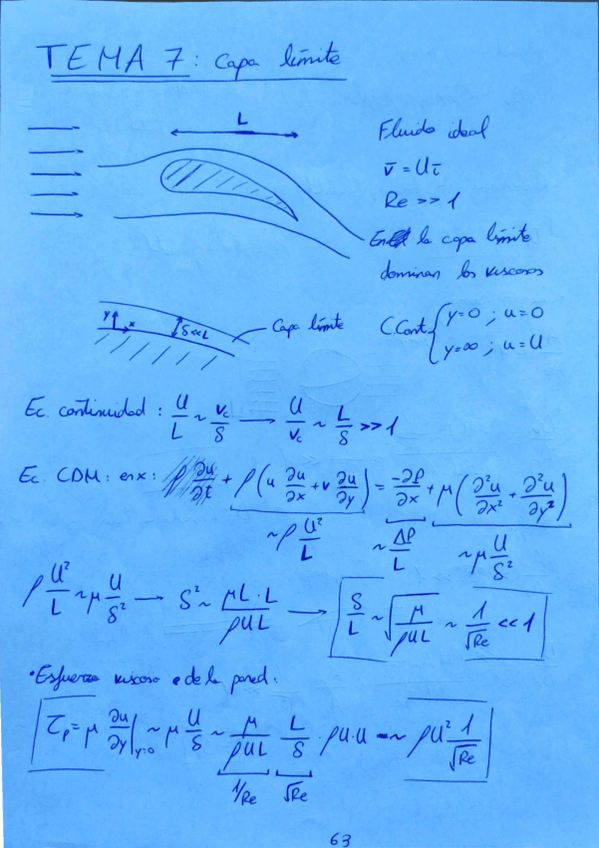 TEMA 7: Capa límite
L
Fluido ideal
v̄ = U ī
Re >> 1
En la capa límite
dominan los viscosos
y x δ<<L Capa límite
C Cont { y=0 ; u=0
y=∞ ; u=U
Ec. continuidad : U/L ~ v_c/δ → U/v_c ~ L/δ >> 1
Ec. CDM: en x: ρ ∂u/∂t + ρ(u ∂u/∂x + v ∂u/∂y) = -∂P/∂x + μ(∂²u/∂x² + ∂²u/∂y²)
~ρ U²/L ~ΔP/L ~μ U/δ²
ρ U²/L ~ μ U/δ² → δ² ~ μL·L/ρUL → δ/L ~ √(μ/ρUL) ~ 1/√Re << 1
•Esfuerzo viscoso de la pared:
τ_p = μ ∂u/∂y|_{y=0} ~ μ U/δ ~ μ/ρUL L/δ · ρU·U ~ ρU² 1/√Re
1/Re √Re
63